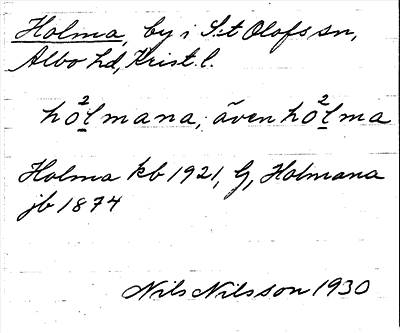 Holma, by i S:t Olofs sn,
Albo hd, Krist. l.
hò²l̲mana, även hò²l̲ma
Holma kb 1921, G, Holmana
jb 1874
Nils Nilsson 1930